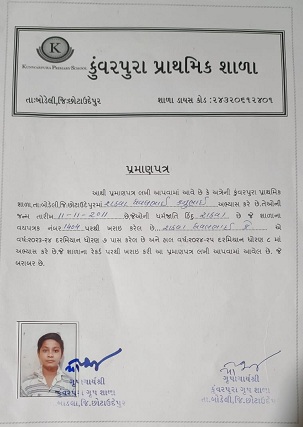 K
KUNVARPURA PRIMARY SCHOOL
કુંવરપુરા પ્રાથમિક શાળા
તા:બોડેલી,જિ:છોટાઉદેપુર શાળા ડાયસ કોડ : ૨૪૩૨૦૬૧૨૪૦૧
પ્રમાણપત્ર
આથી પ્રમાણપત્ર લખી આપવામાં આવે છે કે અત્રેની કુંવરપુરા પ્રાથમિક
શાળા,તા.બોડેલી,જિ.છોટાઉદેપુરમાં રાઠવા અભ્યાસ કરે છે.તેઓની
જન્મ તારીખ 11-11-2011 છે.જેઓની ધર્મજાતિ હિંદુ રાઠવા છે જે શાળાના
વયપત્રક નંબર 1404 પરથી ખરાઇ કરેલ છે... રાઠવા એ
વર્ષ:૨૦૨૩-૨૪ દરમિયાન ધોરણ ૭ પાસ કરેલ છે અને હાલ વર્ષ:૨૦૨૪-૨૫ દરમિયાન ધોરણ ૮ માં
અભ્યાસ કરે છે.જે શાળાના રેકર્ડ પરથી ખરાઇ કરી આ પ્રમાણપત્ર લખી આપવામાં આવેલ છે. જે
બરાબર છે.
કુંવરપુરા શાળા
જિ.છોટાઉદેપુર